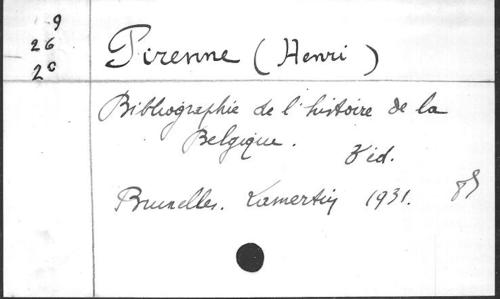 9
26
2c
Pirenne (Henri)
Bibliographie de l'histoire de la
Belgique.
3 éd.
Bruxelles. Lamertin 1931.